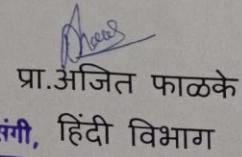 प्रा.अजित फाळके
संगी, हिंदी विभाग